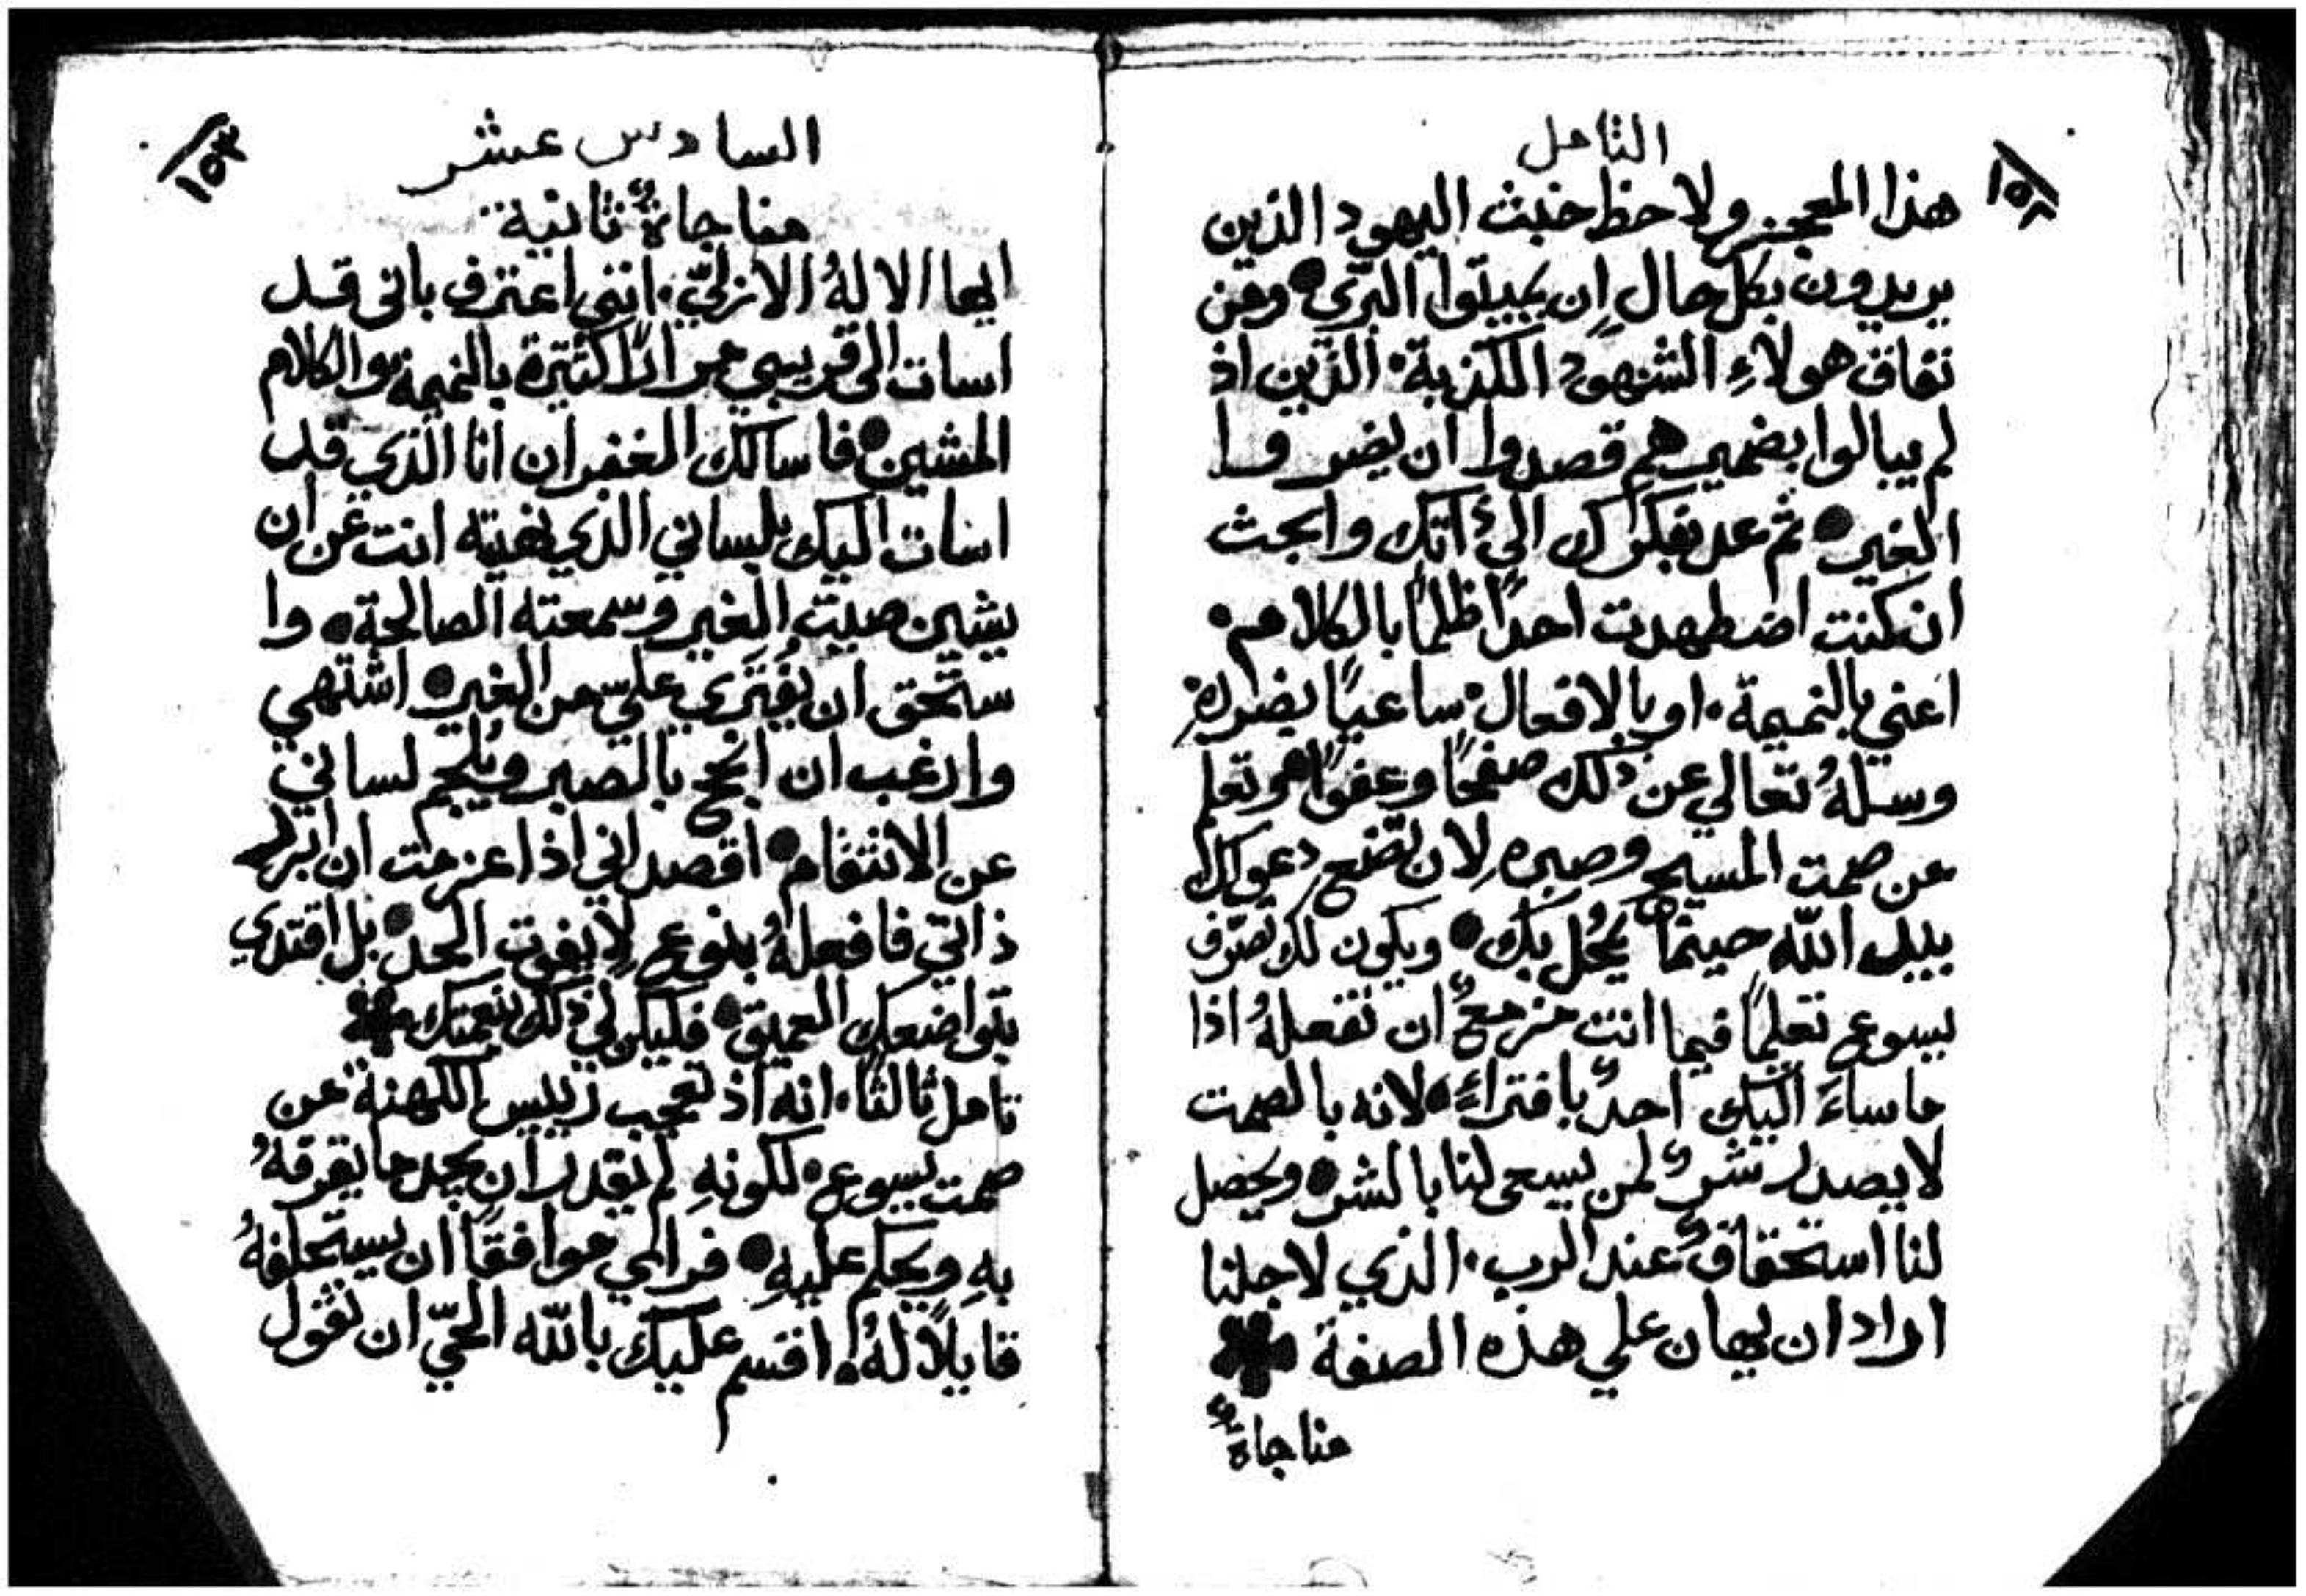 التامل
١٥٢
هذا المعجز ولاحظ خبث اليهود الذين
يريدون بكل حال ان يميتوا البرّي ومن
نفاق هولاءِ الشهود الكذبة الذين اذ
لم يبالوا بضميرهم قصدوا ان يضروا
الغير ثم عد بفكرك الى ذاتك وابحث
ان كنت اضطهدت احدًا ظلمًا بالكلام
اعني بالنميمة او بالافعال ساعيًا بضررهِ
وسلهُ تعالي عن ذلك صفحًا وعفوًا وتعلم
من صمت المسيح وصبرهِ لان تضع دعواك
بيد الله حينما يحُل بك ويكون لك تصرّف
يسوع تعليمًا فيما انت مزمعٌ ان تفعلهُ اذا
ما ساءَ اليك احدٌ بافتراءٍ لانه بالصمت
لا يصدر شرٌ لمن يسعى لنا بالشر ويحصل
لنا استحقاقٌ عند الرب الذي لاجلنا
اراد ان يهان علي هذه الصفة
مناجاةٌ
السادس عشر
١٥٣
مناجاةٌ ثانية
ايها الالهُ الازليّ انني اعترف باني قد
اسات الى قريبي مرارًا كثيرة بالنميمة والكلام
المشين فاسالك الغفران انا الذي قد
اسات اليك بلساني الذي نهيته انت عن ان
يشين صيت الغير وسمعته الصالحة وا
ستحق ان يُفتَري عليّ من الغير اشتهي
وارغب ان انجح بالصبر ويُلجم لساني
عن الانتقام اقصد اني اذا عزمت ان ابرر
ذاتي فافعلهُ بنوعٍ لا يفوت الحدّ بل اقتدي
بتواضعك العميق فليكن لي ذلك بنعمتك
تامل ثالثًا انه اذ تعجب رييس الكهنة من
صمت يسوع لكونهِ لم يقدر ان يجد ما يقرفهُ
بهِ ويحكم عليهِ فراي موافقًا ان يستحلفهُ
قايلًا لهُ اقسم عليك بالله الحيّ ان تقول